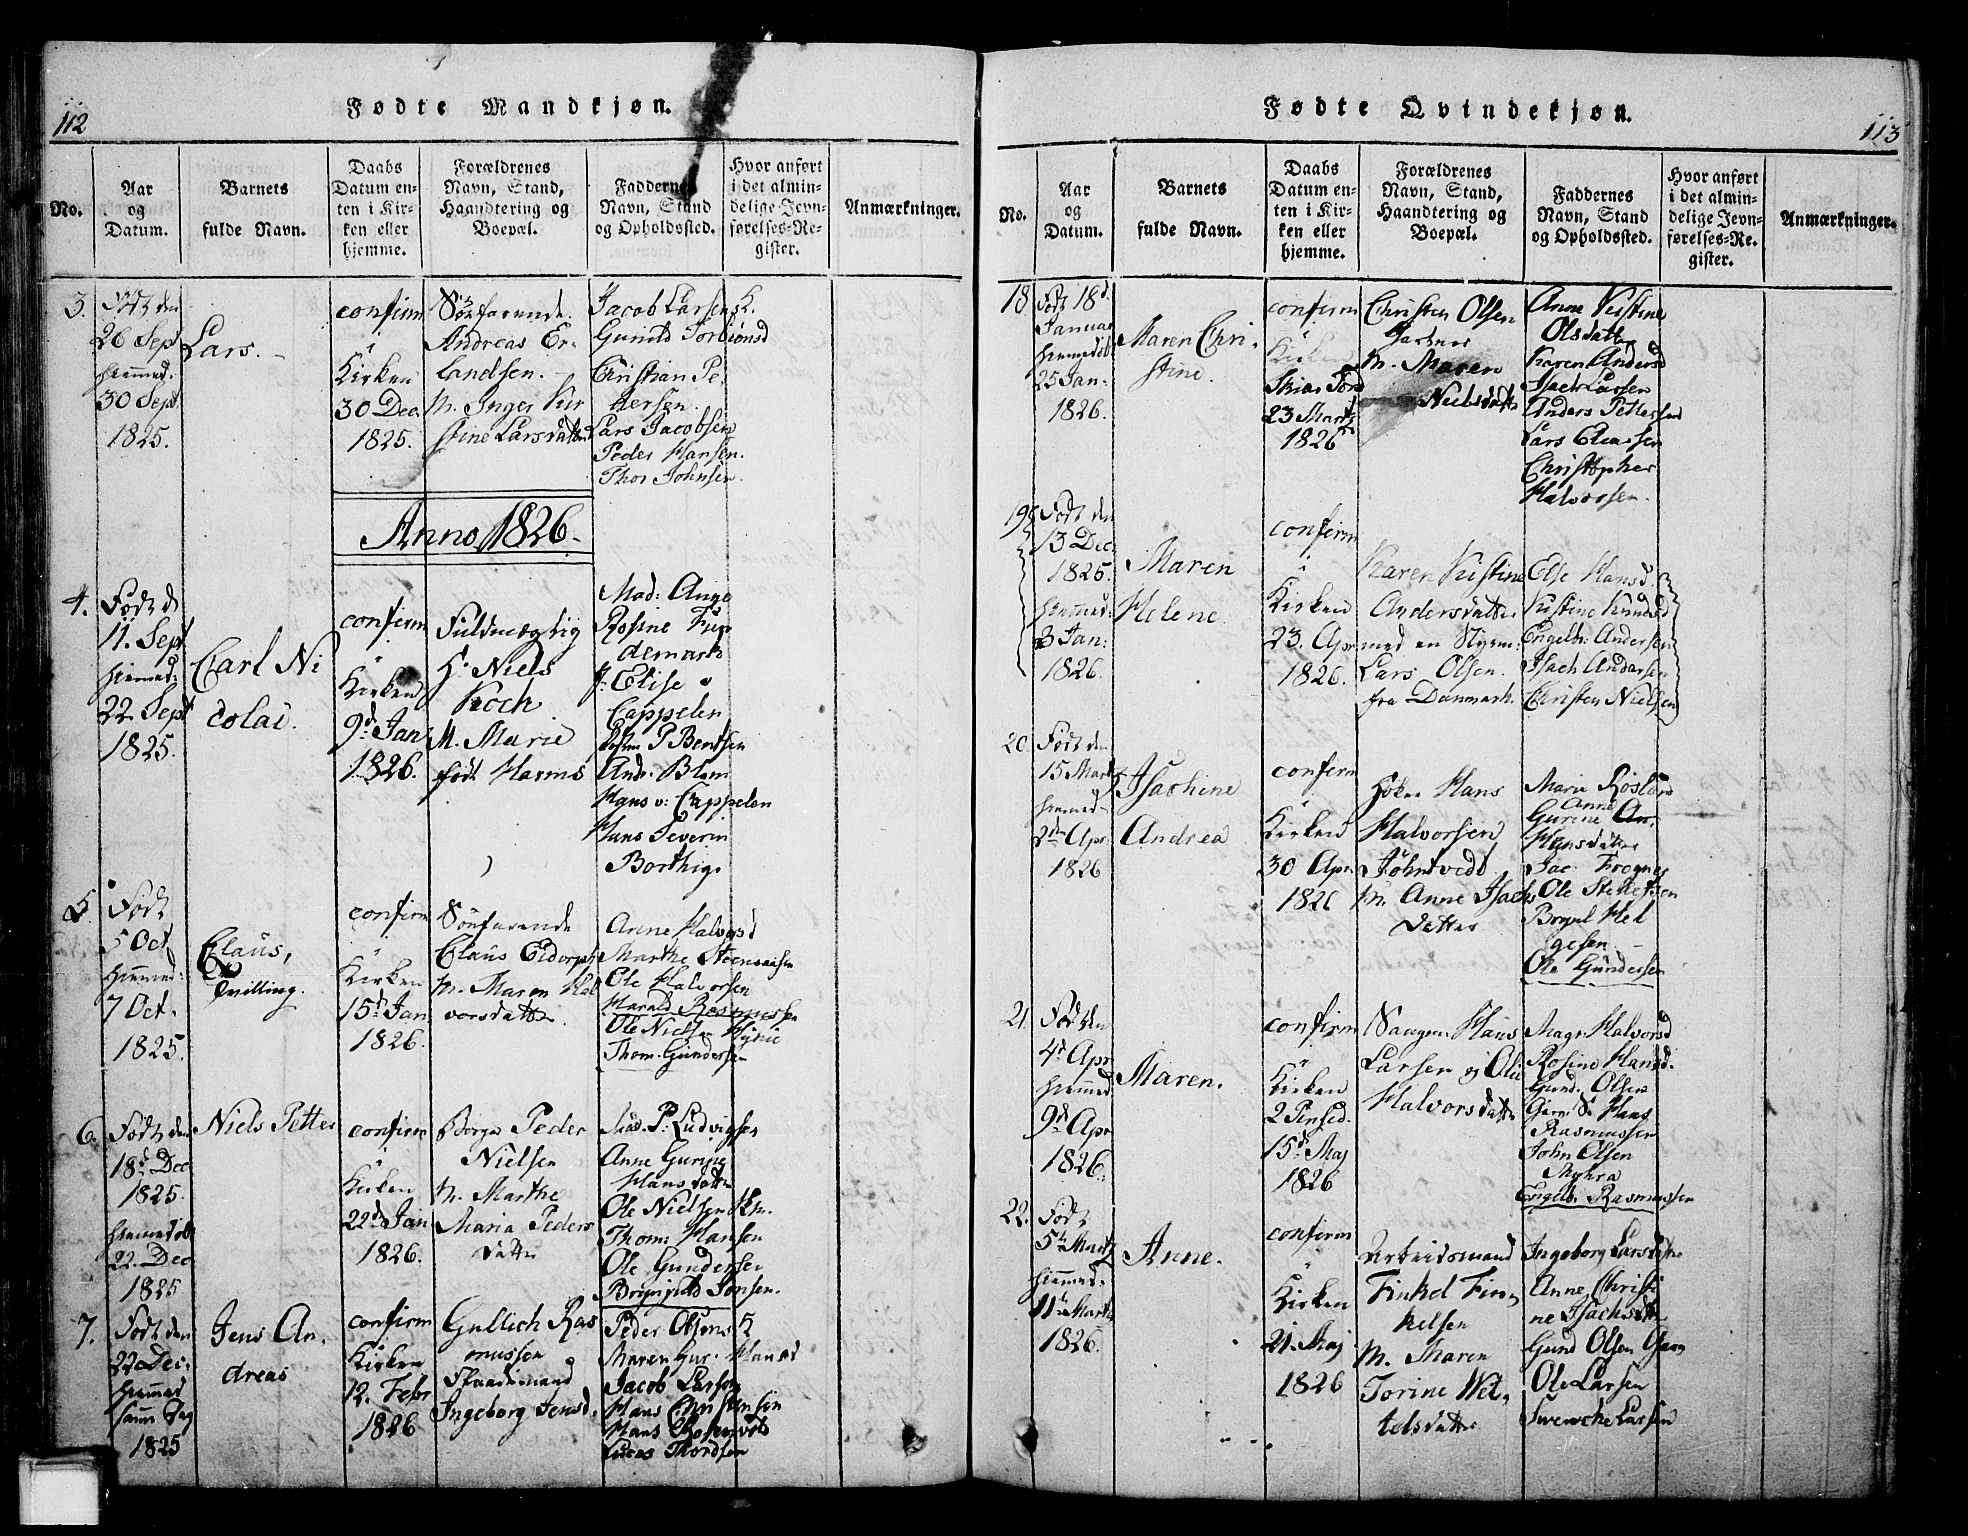 112
Fødte Mandkjøn.
No.
Aar
og
Datum.
Barnets
fulde Navn.
Daabs
Datum en-
ten i Kir-
ken eller
hjemme.
Forældrenes
Navn, Stand,
Haandtering og
Boepæl.
Faddernes
Navn, Stand
og Opholdssted.
Hvor anført
i det almin-
delige Jevn-
førelses-Re-
gister.
Anmærkninger.
3.
Født den
26 Sept
hiemmed.
30 Sept.
1825.
Lars.
confirm
i
Kirken
30 Dec.
1825.
Søefarende
Andreas Er-
landsen.
M. Inger Kir
stine Larsdatter
Jacob Larsens K.
Gunild Torbiønsd
Christian Pe-
tersen.
Lars Jacobsen
Peder Hansen.
Thor Johnsen.
Anno 1826.
4.
Født d
11. Sept
hiemmed:
22 Sept
1825.
Carl Ni
colai.
confirm
i
Kirken
9d Jan
1826.
Fuldmægtig
H. Niels
Koch
M. Marie
født Harms
Mad: Ange
Rosine
J: Elise v
Cappelen
P Bentsen
Andr. Blom
Hans v: Cappelen
Hans Severin
Borthig.
5.
Født
5 Oct
hiemmed:
7 Oct.
1825.
Claus,
Tvilling.
confirm
i
Kirken
15d Jan
1826.
Søefarende
Claus
M. Maren Hal
vorsdatter
Anne Halvorsd
Marthe Steensaasen
Ole Halvorsen
Harald Rasmussen
Ole Nielsen Myrie
Thom. Gundersen
6.
Født den
18d Dec
1825.
hiemmedøb
22. Dec
1825
Niels Petter
confirm
i
Kirken
22de Jan
1826.
Borger Peder
Nielsen
M. Marthe
Maria Peders
datter
Mad. P. Ludvigsen
Anne Gurine
Hansdatter
Ole Nielsen Skm.
Thom: Hansen
Ole Gundersen
Brynild Jonsen.
7.
Født den
22 Dec.
hiemmed
samme Dag
1825
Jens An-
dreas
confirm
i
Kirken
12. Febr
1826
Gullich Ras
mussen
Strandmand
Ingeborg Jensd.
Peder Olsens K
Maren Gur. Hansd
Jacob Larsen
Hans Christensen
Hans Rosenvold
Lucas Thordsen
113
Fødte Qvindekjøn.
No.
Aar
og
Datum.
Barnets
fulde Navn.
Daabs
Datum en-
ten i Kir-
ken eller
hjemme.
Forældrenes
Navn, Stand,
Haandtering og
Boepæl.
Faddernes
Navn, Stand
og Opholdssted.
Hvor anført
i det almin-
delige Jevn-
førelses-Re-
gister.
Anmærkninger.
18.
Født 18d
Januar
hiemmedøb
25 Jan:
1826.
Maren Chri-
stine.
confirm
i
Kirken
Skiær Tord
23 Marts
1826
Christen Olsen
Gartner
M. Maren
Nielsdatter
Anne Kirstine
Olsdatter
Karen Andersd
Isach Larsen
Anders Pettersen
Lars Claessen
Christopher
Halvorsen.
19.
Født den
13 Dec.
1825.
hiemmed:
3 Jan:
1826.
Maren
Helene.
confirm
i
Kirken
23. Apr
1826.
Karen Kirstine
Andersdatter
med en Styrm:
Lars Olsen.
fra Danmark.
Else Hansd.
Kirstine Knudsd
Engelb: Andersen
Isach Andersen
Christen Nielsen
20.
Født den
15 Marts
hiemmed-
2den Apr.
1826
Isachine
Andrea
confirm
i
Kirken
30 Apr.
1826
Høker Hans
Halvorsen
Johntvedt
M. Anne Isachs
datter
Marie
Anne
Gurine An.
Hansdatter
Jac: Frogner
Ole Steketsen
Brynil Hel
gesen
Ole Gundersen
21.
Født den
4d Apr
hiemmed
9d Apr
1826.
Maren.
confirm
i
Kirken
2 Pinsed.
15d Maj
1826
Saugm. Hans
Larsen og Olie
Halvorsdatter
Magr Halvorsd
Rosine Hansd.
Gund. Olsen
Hans
Rasmussen
John Olsen
Myhra
Engelb. Rasmussen
22.
Født
5te Marts
hiemmed:
11te Marts
1826.
Anne.
confirm
i
Kirken
21. Maj
1826
Arbeidsmand
Finkel Fin-
kelsen
M. Maren
Torine Wet-
telsdatter
Ingeborg Larsdatter
Anne Christi
ne Isachsdatter
Gund Olsen
Ole Larsen
Swenche Larsen